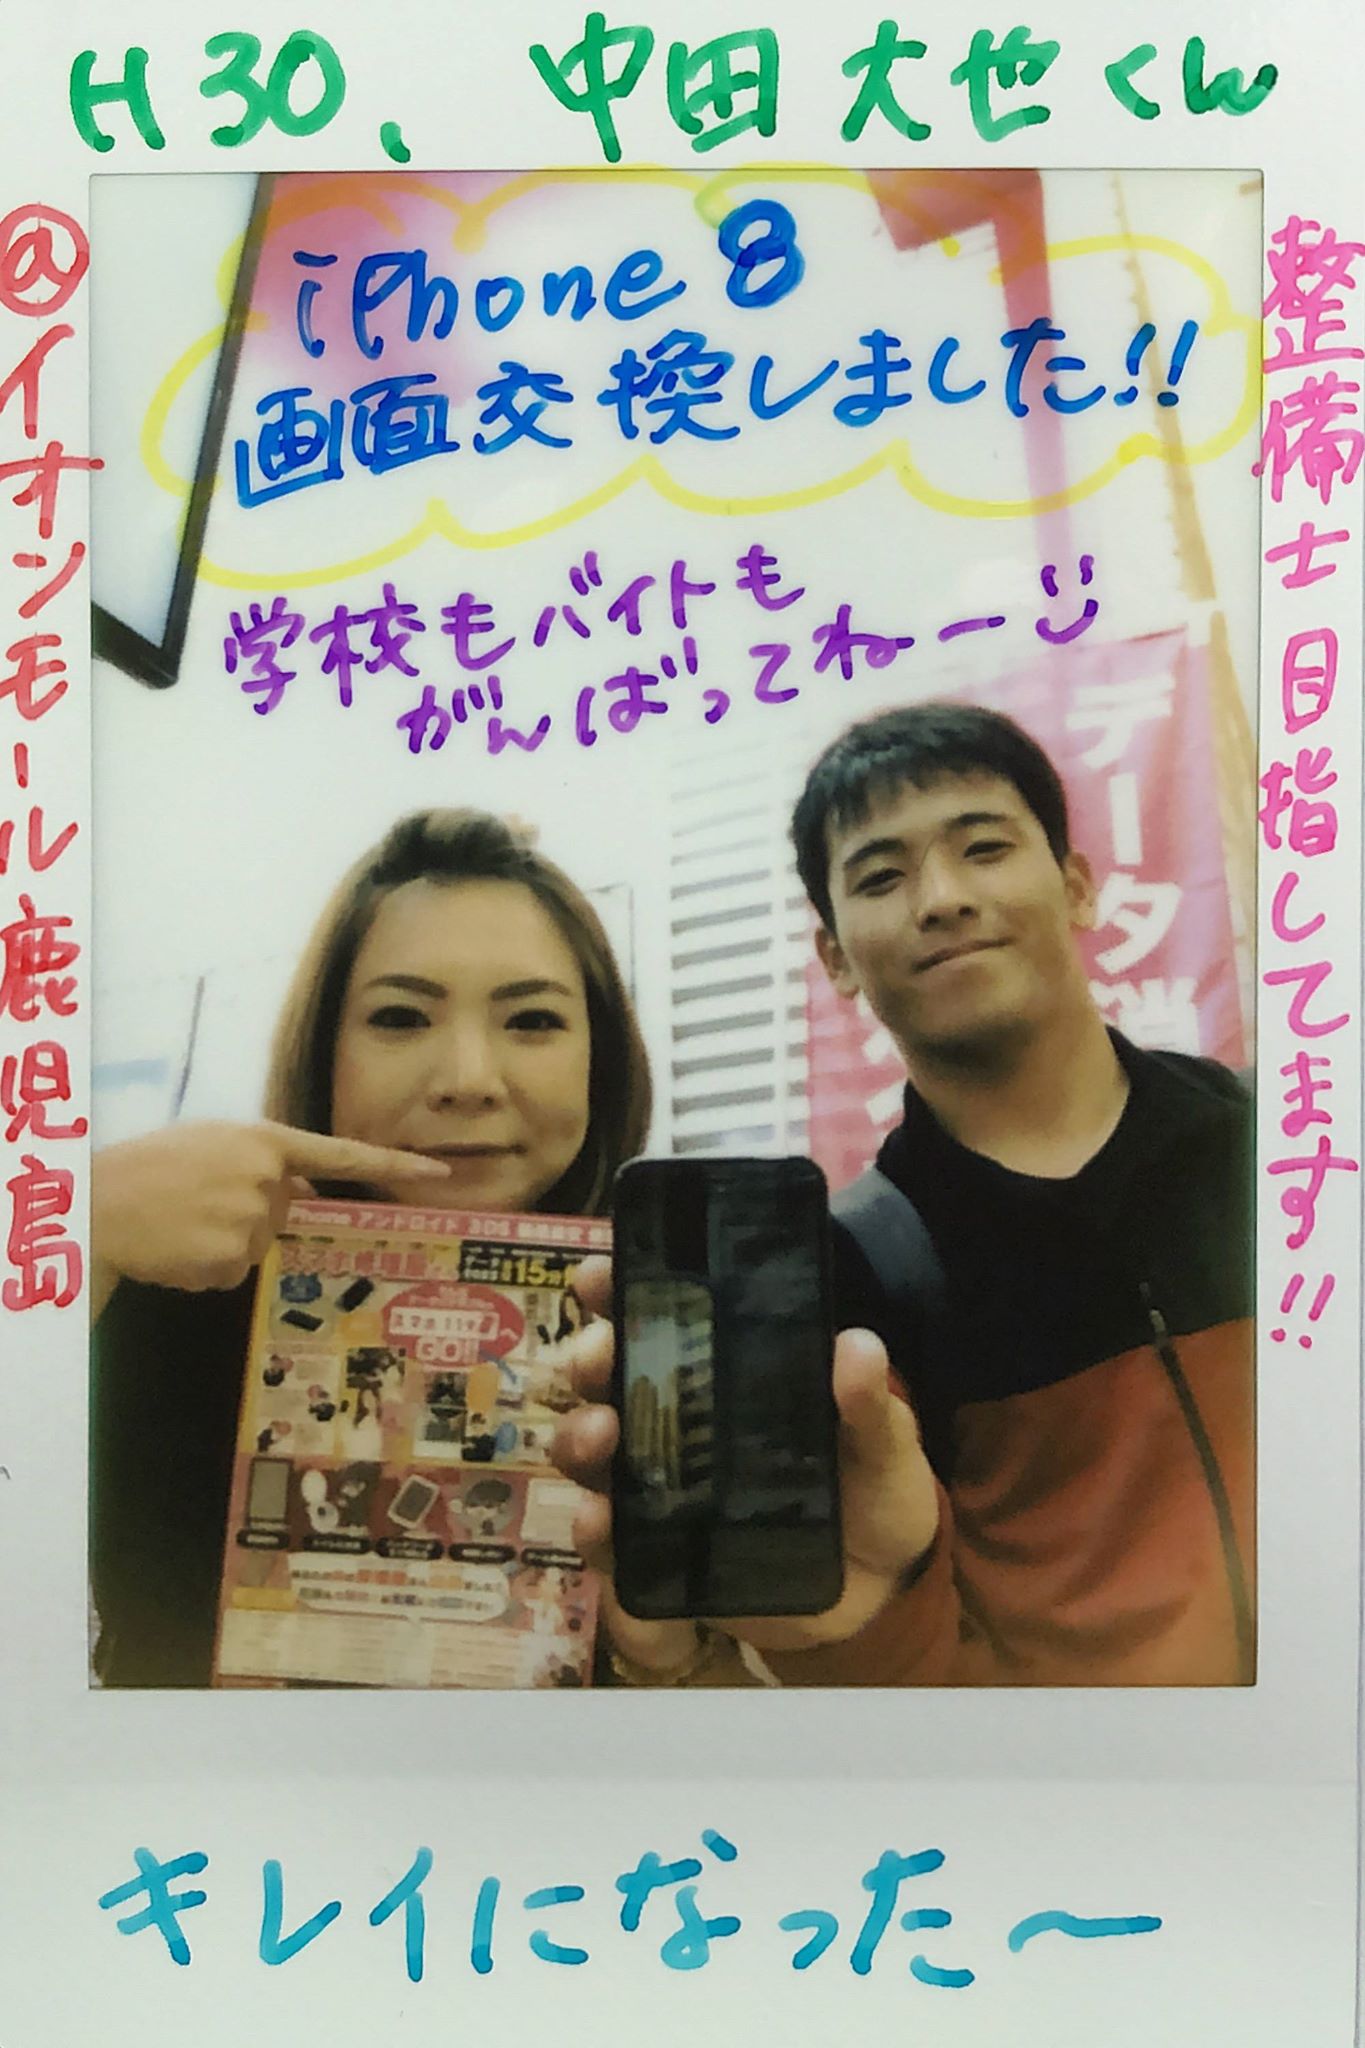 H30、中田大也くん
@イオンモール鹿児島
iPhone 8
画面交換しました!!
学校もバイトも
がんばってねー
整備士目指してます!!
データ消
iPhone アンドロイド 3DS
スマホ修理屋
15分
スマホ119へ
GO!!
キレイになった〜